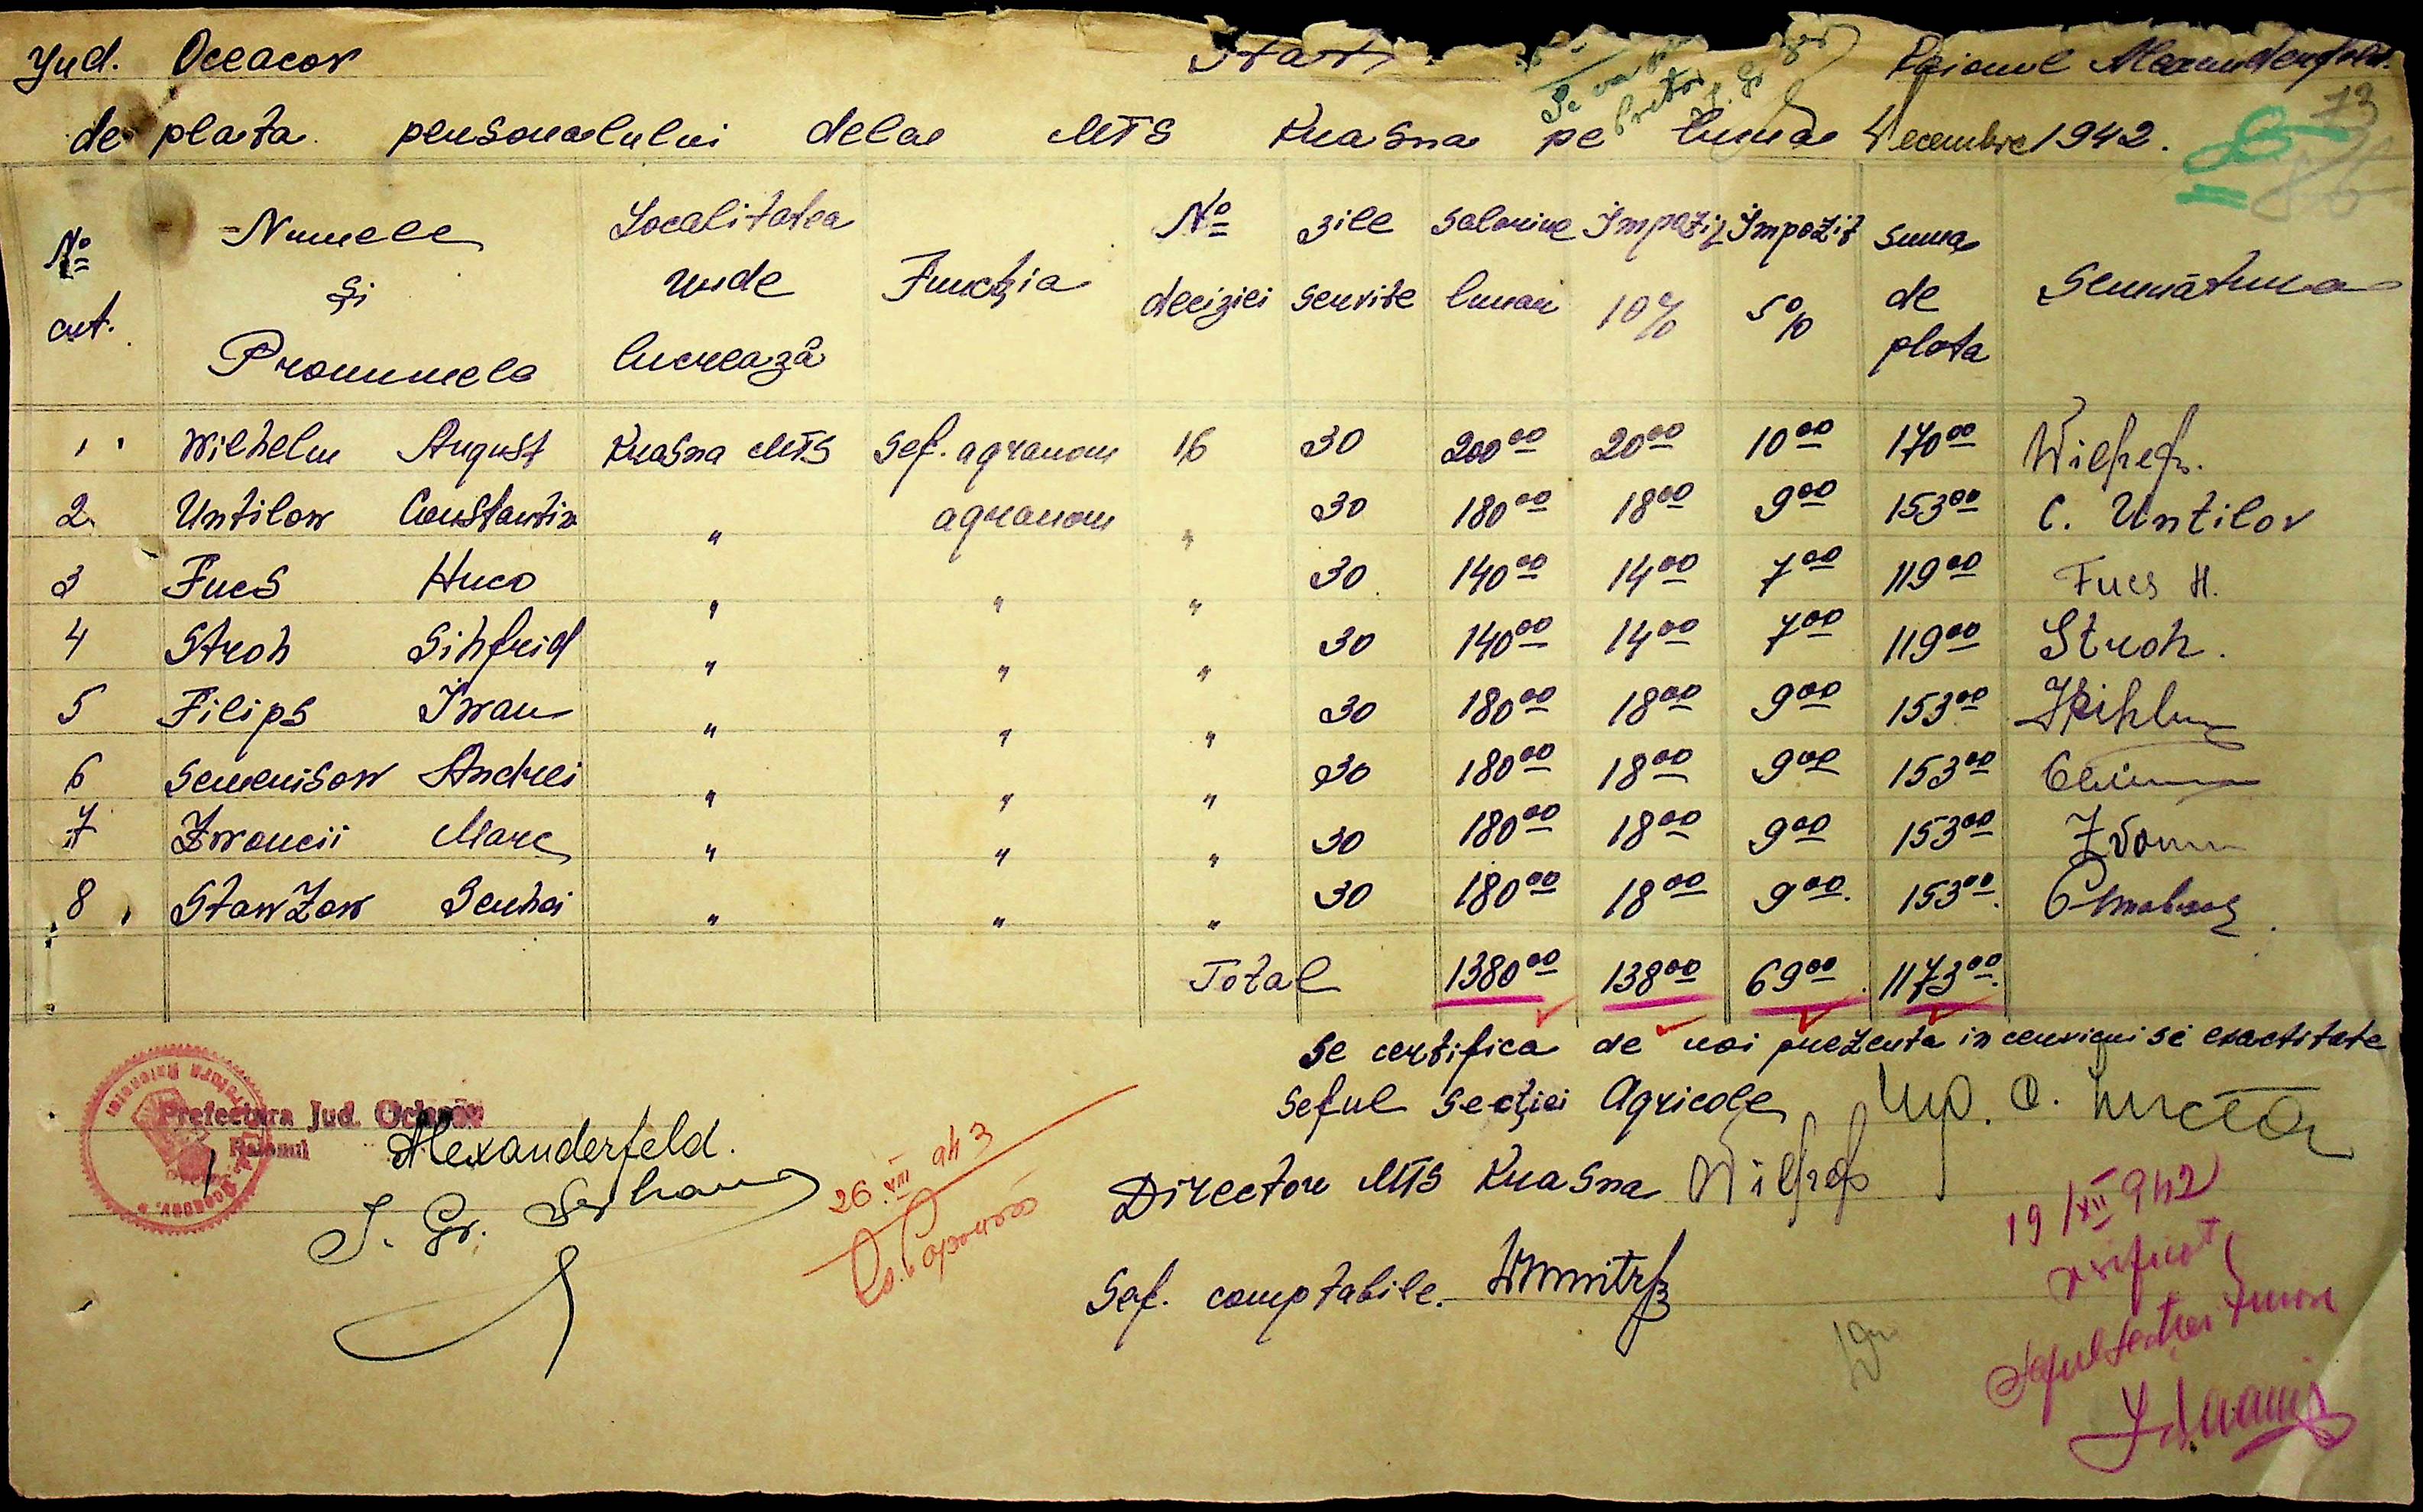 Jud. Oceacov Stat Raionul Alexanderfeld.
de plata personalului delae MTS Krasna pe luna Decembre 1942.
73
№ crt. Numele și Pronumele Localitatea unde lucrează Funcția № deciziei zile servite Salariul lunar Impozit 10% Impozit 5% suma de plata Semnătura
1 Wilhelm August Krasna MTS Sef. agranom 16 30 200 00 20 00 10 00 170 00 Wilhelm.
2 Untilow Constantin " agranom " 30 180 00 18 00 9 00 153 00 C. Untilov
3 Fucs Huco " " " 30 140 00 14 00 7 00 119 00 Fucs H.
4 Stroh Sihfrid " " " 30 140 00 14 00 7 00 119 00 Stroh.
5 Filips Iwan " " " 30 180 00 18 00 9 00 153 00
6 Semenisow Andrei " " " 30 180 00 18 00 9 00 153 00
7 Zwoncii Marc " " " 30 180 00 18 00 9 00 153 00
8 StawZow Serhei " " " 30 180 00 18 00 9 00 153 00
Total 1380 00 138 00 69 00 1173 00
Se certifica de noi prezenta in cerviciu si exactitate
Seful Secției Agricole
Prefectura Jud. Oceacov
Raionul Alexanderfeld.
26 XII 943
Director MTS Krasna
Sef. comptabile.
19/XII 942
verificat
Seful Sectiei